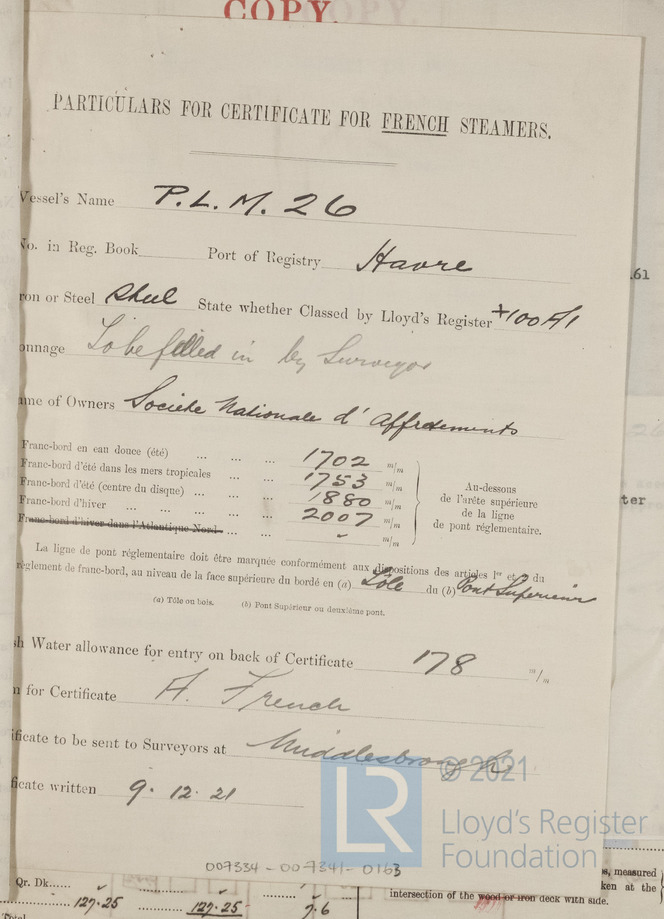 COPY.
PARTICULARS FOR CERTIFICATE FOR FRENCH STEAMERS.
Vessel's Name P.L.M. 26
No. in Reg. Book Port of Registry Havre
ron or Steel Steel State whether Classed by Lloyd's Register +100A1
onnage To be filled in by Surveyor
me of Owners Société Nationale d'Affretements
Franc-bord en eau douce (été) ... ... ... 1702 m/m
Franc-bord d'été dans les mers tropicales ... ... 1753 m/m
Franc-bord d'été (centre du disque) ... ... ... 1880 m/m
Franc-bord d'hiver ... ... ... ... ... 2007 m/m
Franc-bord d'hiver dans l'Atlantique Nord ... ... - m/m
Au-dessous
de l'arête supérieure
de la ligne
de pont réglementaire.
La ligne de pont réglementaire doit être marquée conformément aux dispositions des articles 1er et 2 du
règlement de franc-bord, au niveau de la face supérieure du bordé en (a) Tôle du (b) Pont Supérieur
(a) Tôle ou bois. (b) Pont Supérieur ou deuxième pont.
h Water allowance for entry on back of Certificate 178 m/m
n for Certificate A. French
ificate to be sent to Surveyors at Middlesbrough
ficate written 9.12.21
007334-007341-0163
.61
ter
© 2021
LR
Lloyd's Register
Foundation
Qr. Dk...... 127.25 127.25 7.6
Total
s, measured
ken at the
intersection of the wood or iron deck with side.